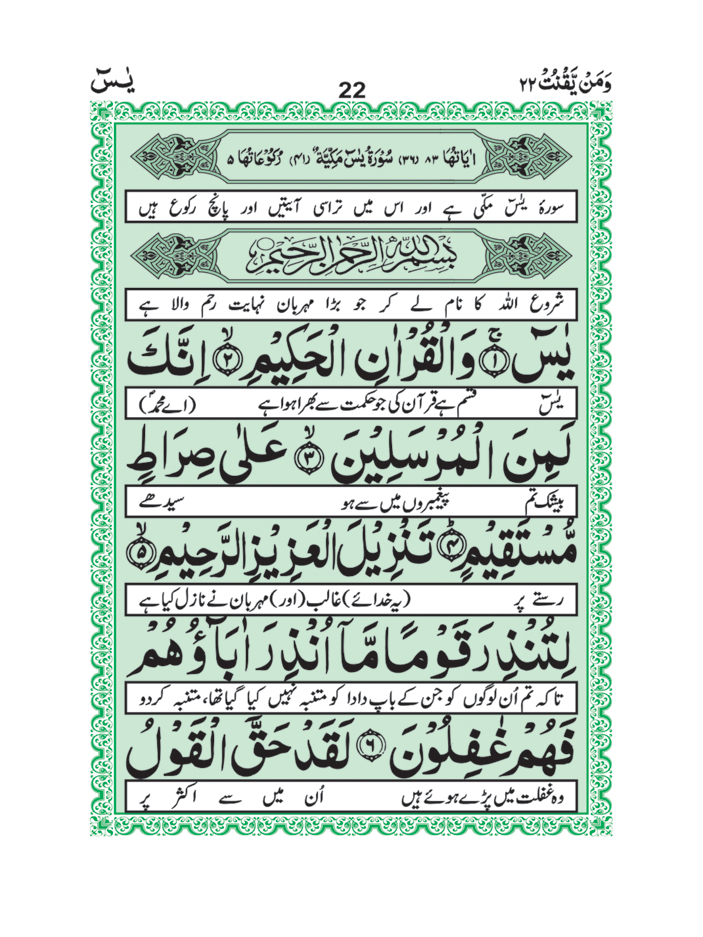 وَمَنْ يَّقْنُتْ ٢٢
22
يٰسٓ
اٰيَاتُهَا ٨٣ (٣٦) سُوْرَةُ يٰسٓ مَكِّيَّةٌ (٤١) رُكُوْعَاتُهَا ٥
سورۂ یٰسٓ مکّی ہے اور اس میں تراسی آیتیں اور پانچ رکوع ہیں
بِسْمِ اللّٰهِ الرَّحْمٰنِ الرَّحِيْمِ
شروع اللہ کا نام لے کر جو بڑا مہربان نہایت رحم والا ہے
يٰسٓ ۚ ﴿١﴾ وَالْقُرْاٰنِ الْحَكِيْمِ ۙ ﴿٢﴾ اِنَّكَ
یٰسٓ قسم ہے قرآن کی جو حکمت سے بھرا ہوا ہے (اے محمدؐ)
لَمِنَ الْمُرْسَلِيْنَ ۙ ﴿٣﴾ عَلٰى صِرَاطٍ
بیشک تم پیغمبروں میں سے ہو سیدھے
مُّسْتَقِيْمٍ ؕ ﴿٤﴾ تَنْزِيْلَ الْعَزِيْزِ الرَّحِيْمِ ۙ ﴿٥﴾
رستے پر (یہ خدائے) غالب (اور) مہربان نے نازل کیا ہے
لِتُنْذِرَ قَوْمًا مَّاۤ اُنْذِرَ اٰبَآؤُهُمْ
تاکہ تم اُن لوگوں کو جن کے باپ دادا کو متنبہ نہیں کیا گیا تھا، متنبہ کردو
فَهُمْ غٰفِلُوْنَ ﴿٦﴾ لَقَدْ حَقَّ الْقَوْلُ
وہ غفلت میں پڑے ہوئے ہیں اُن میں سے اکثر پر